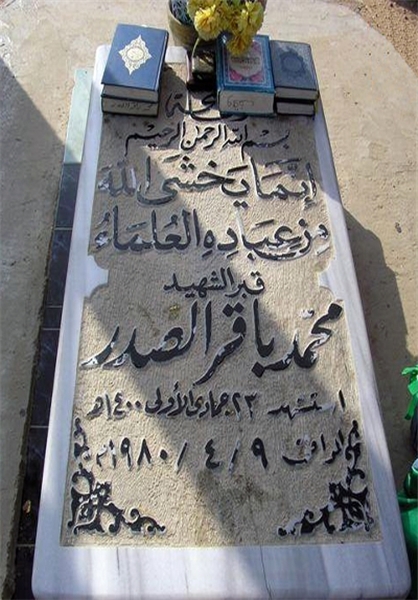 بسم الله الرحمن الرحيم
إنما يخشى الله
من عباده العلماء
قبر الشهيد
محمد باقر الصدر
استشهد ٢٣ جمادى الأولى ١٤٠٠هـ
الموافق ٩/٤/١٩٨٠م